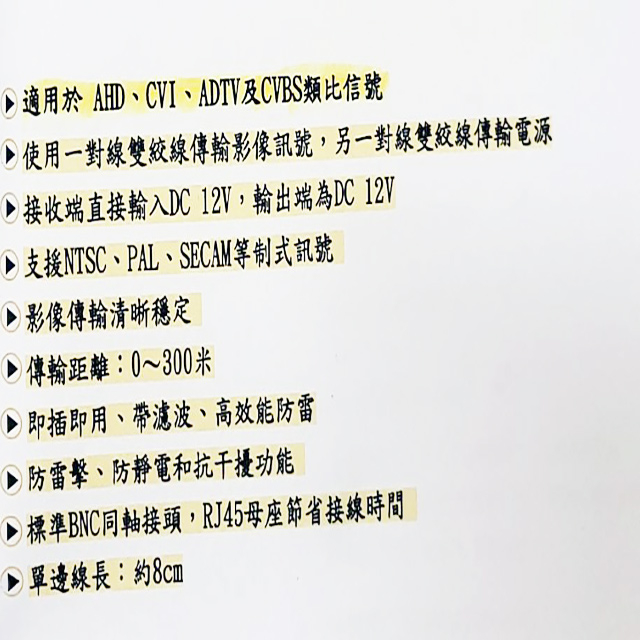 適用於 AHD、CVI、ADTV及CVBS類比信號
使用一對線雙絞線傳輸影像訊號，另一對線雙絞線傳輸電源
接收端直接輸入DC 12V，輸出端為DC 12V
支援NTSC、PAL、SECAM等制式訊號
影像傳輸清晰穩定
傳輸距離：0～300米
即插即用、帶濾波、高效能防雷
防雷擊、防靜電和抗干擾功能
標準BNC同軸接頭，RJ45母座節省接線時間
單邊線長：約8cm